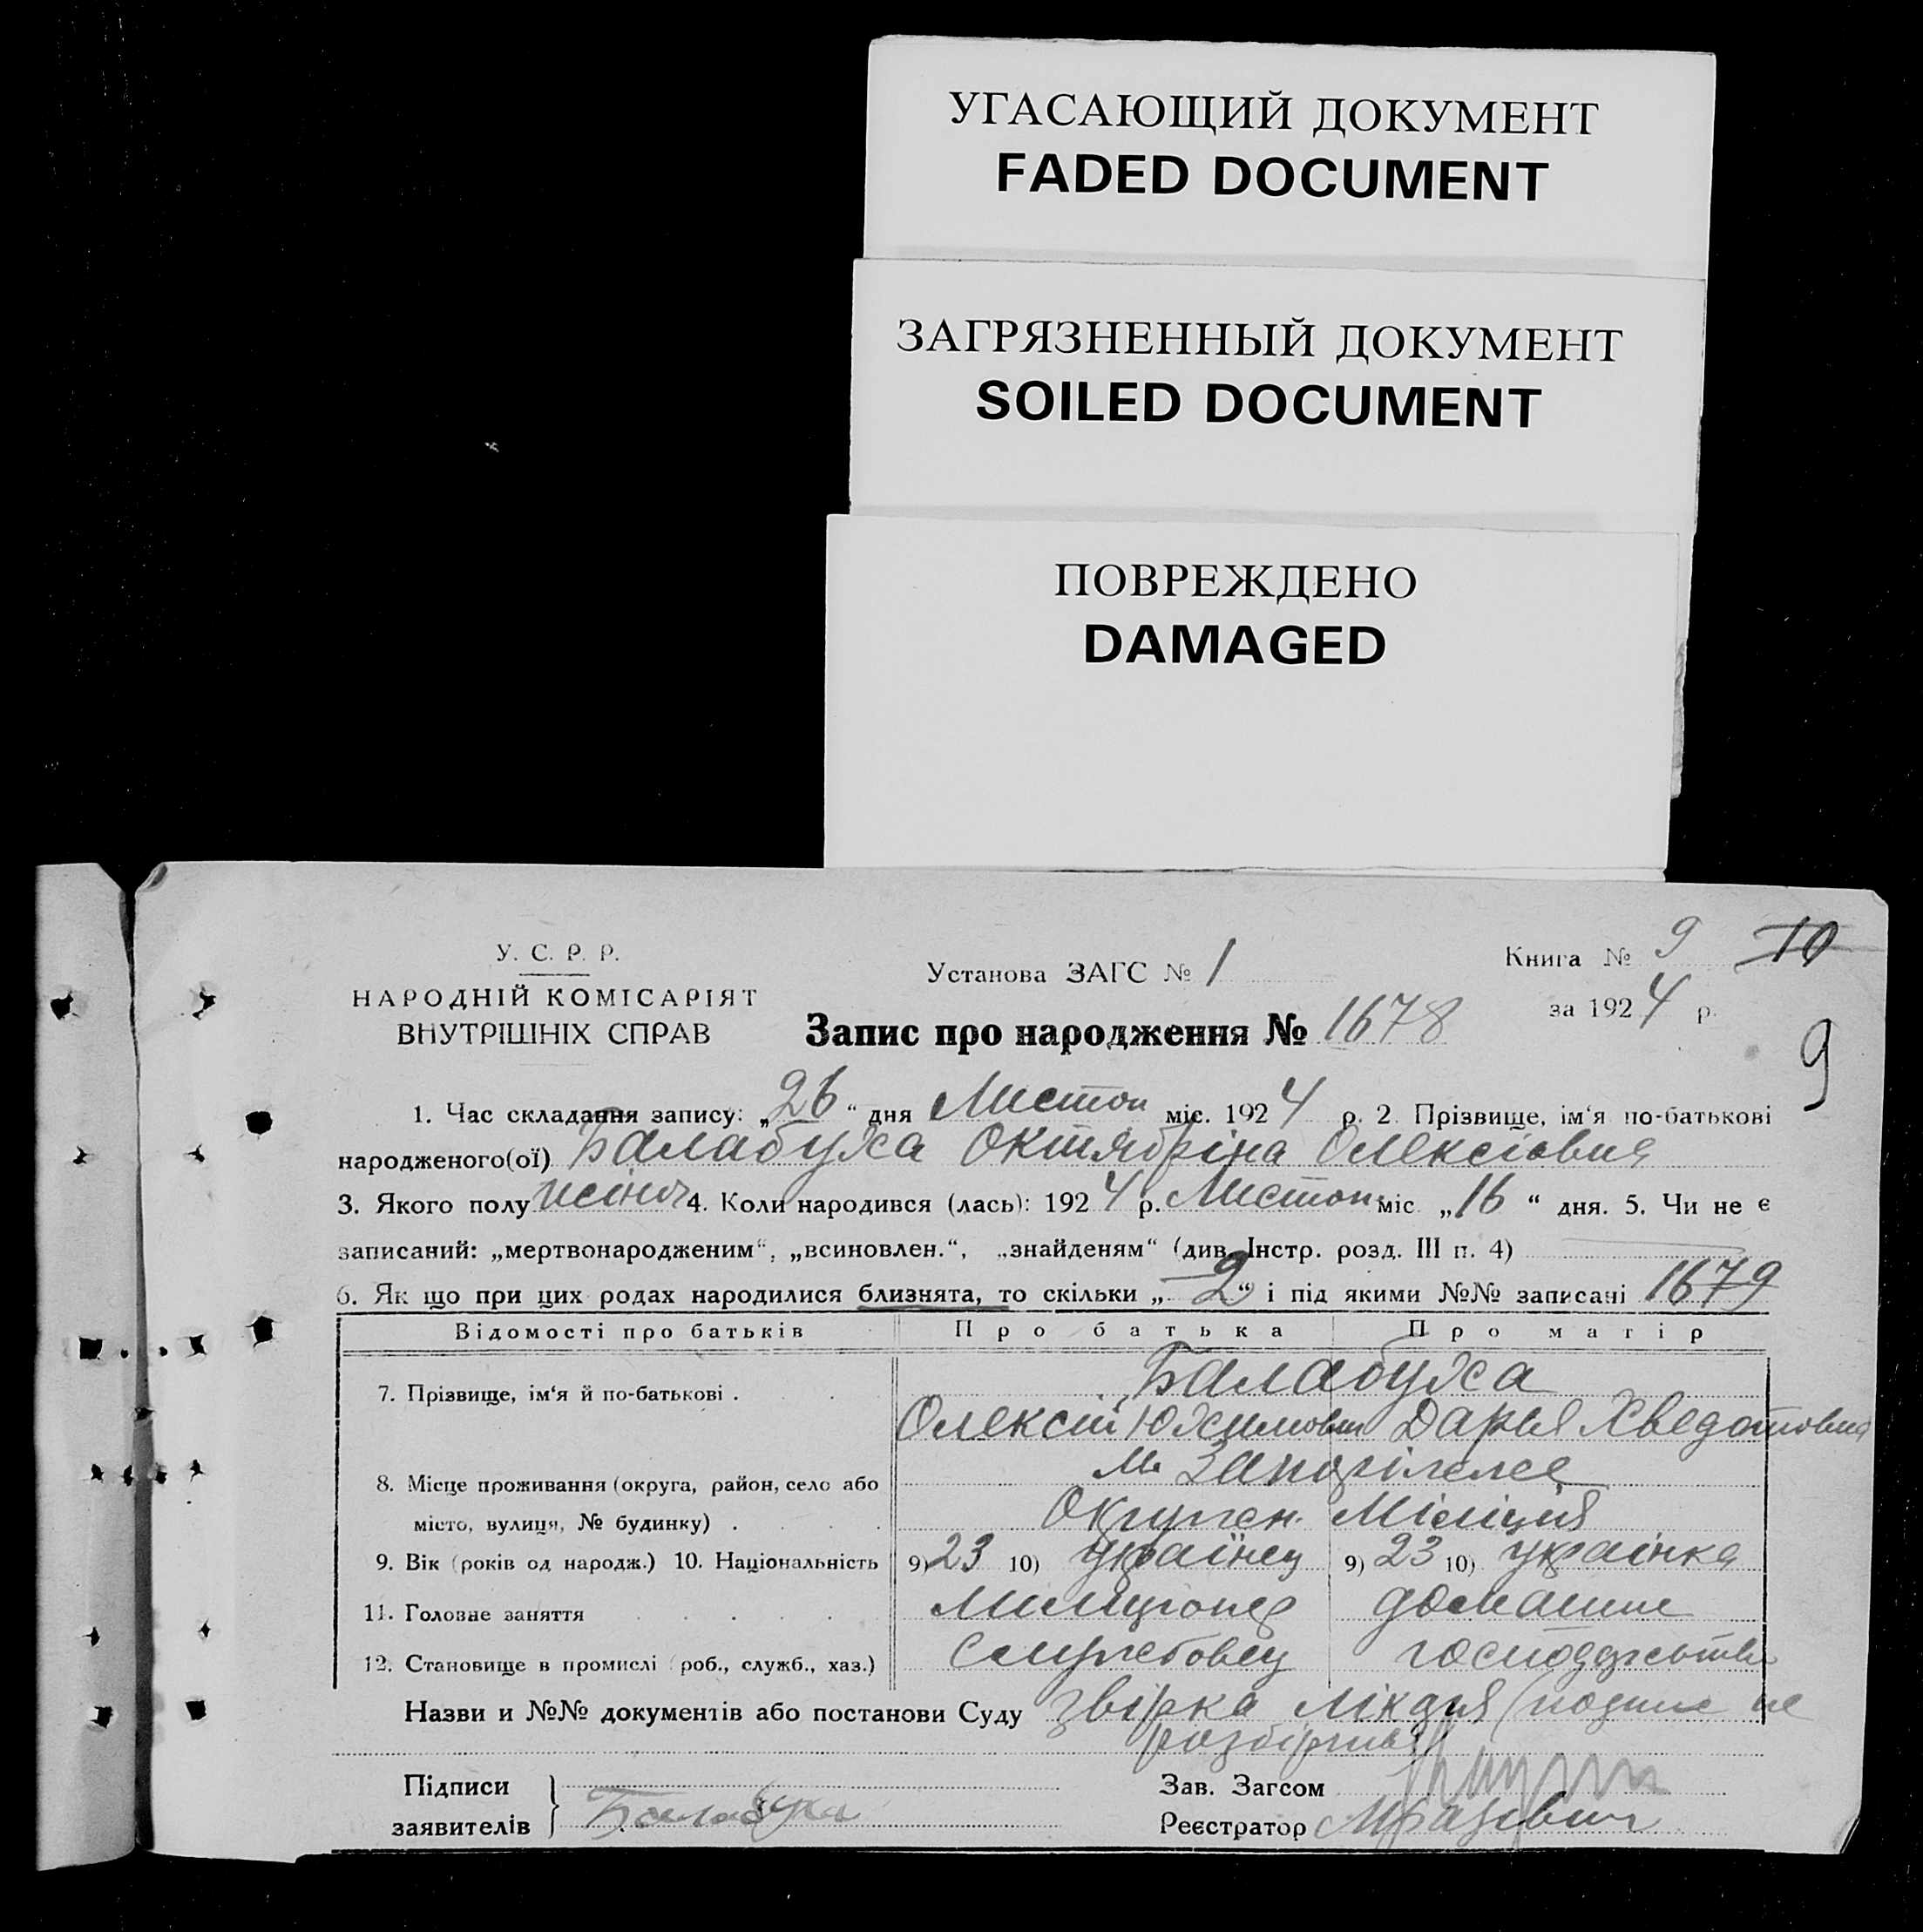 УГАСАЮЩИЙ ДОКУМЕНТ
FADED DOCUMENT
ЗАГРЯЗНЕННЫЙ ДОКУМЕНТ
SOILED DOCUMENT
ПОВРЕЖДЕНО
DAMAGED
У. С. Р. Р.
НАРОДНІЙ КОМІСАРІЯТ
ВНУТРІШНІХ СПРАВ
Установа ЗАГС № 1
Книга № 9 10
за 1924 р.
9
Запис про народження № 1678
1. Час складання запису: „26“ дня Листоп міс. 1924 р. 2. Прізвище, ім‘я по-батькові
народженого(ої) Балабуха Октябріна Олексіовна
3. Якого полу жіноч 4. Коли народився (лась): 1924 р. Листоп міс. „16“ дня. 5. Чи не є
записаний: „мертвонародженим“, „всиновлен.“, „знайденям“ (див. Інстр. розд. III п. 4)
6. Як що при цих родах народилися близнята, то скільки „2“ і під якими №№ записані 1679
Відомості про батьків Про батька Про матір
7. Прізвище, ім‘я й по-батькові . Балабуха
Олексій Юхимович Дарья Хведотовна
8. Місце проживання (округа, район, село або м. Запоріжжє
місто, вулиця, № будинку) . Окружн. Міліція
9. Вік (років од народж.) 10. Національність 9) 23 10) українец 9) 23 10) українка
11. Головне заняття Милиціонер домашнє
12. Становище в промислі (роб., служб., хаз.) Служебовец господарство
Назви и №№ документів або постанови Суду звірка лікаря (подпис не
розбірчив)
Підписи
заявителів Балабуха
Зав. Загсом
Реєстратор